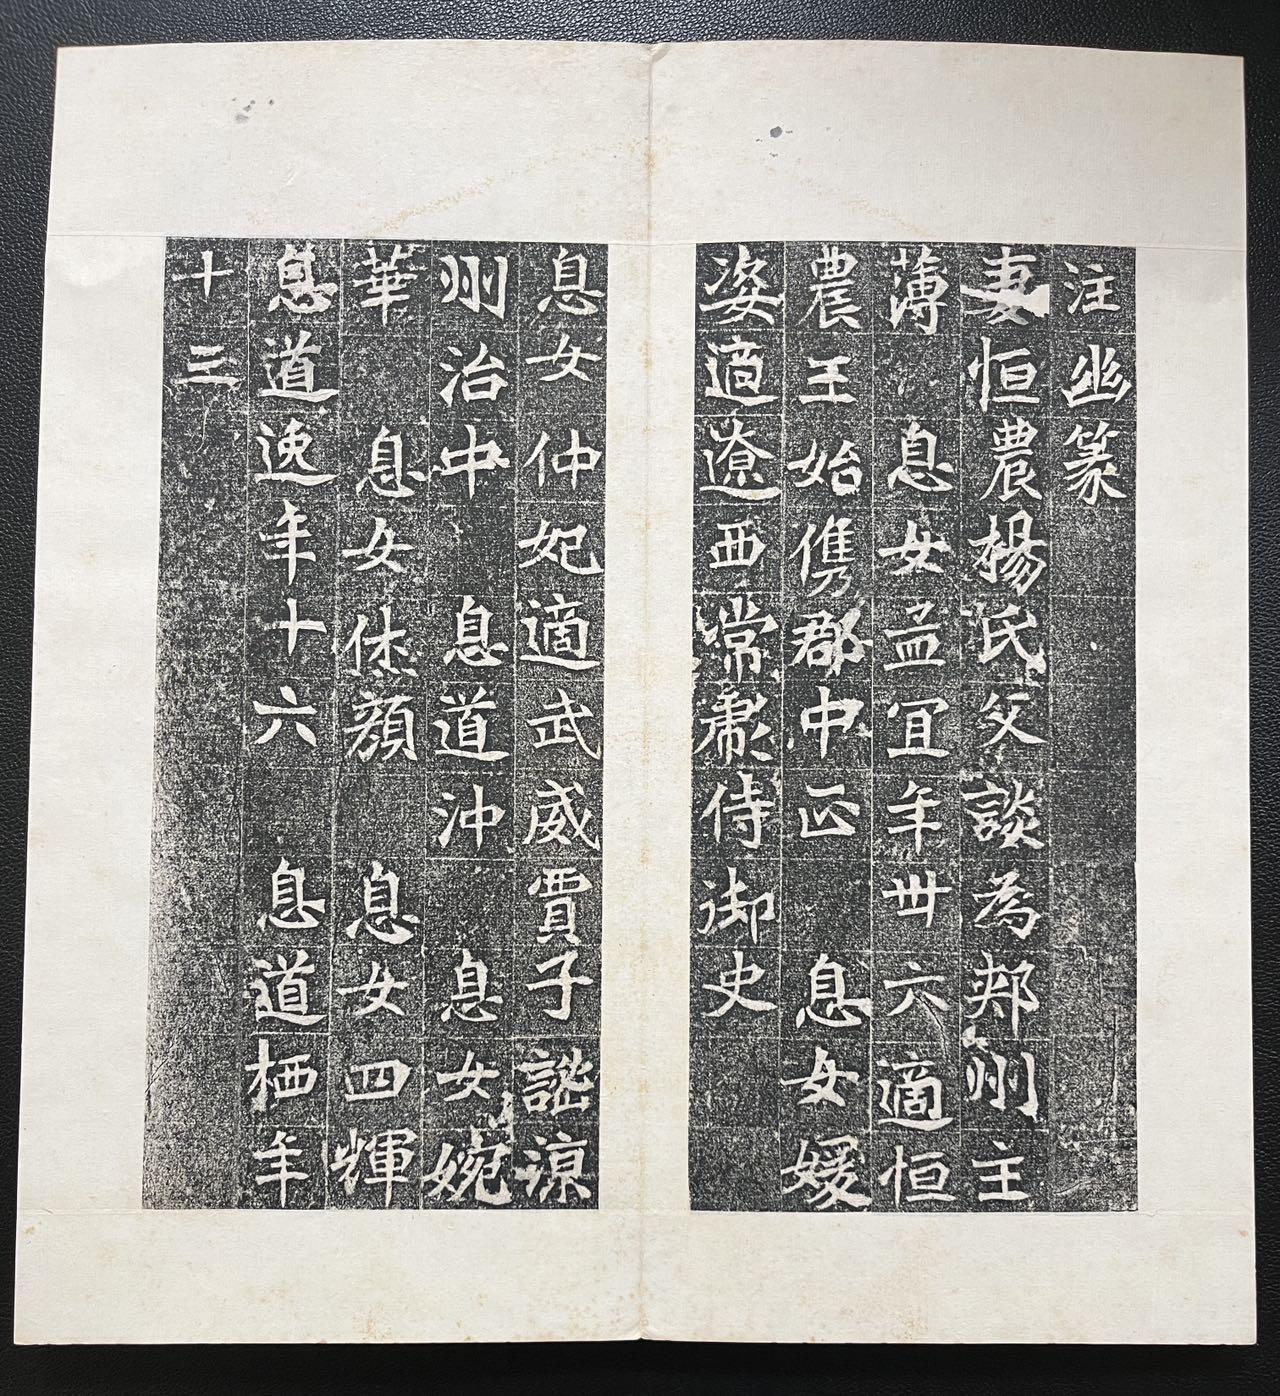 注幽篆
妻恒農楊氏父談為郟州主
薄　息女孟宜年卅六適恒
農王始儁郡中正　息女媛
姿適遼西常肅侍御史
息女仲妃適武威賈子謐涼
州治中　息道沖　息女婉
華　息女休顏　息女四輝
息道逸年十六　息道栖年
十三